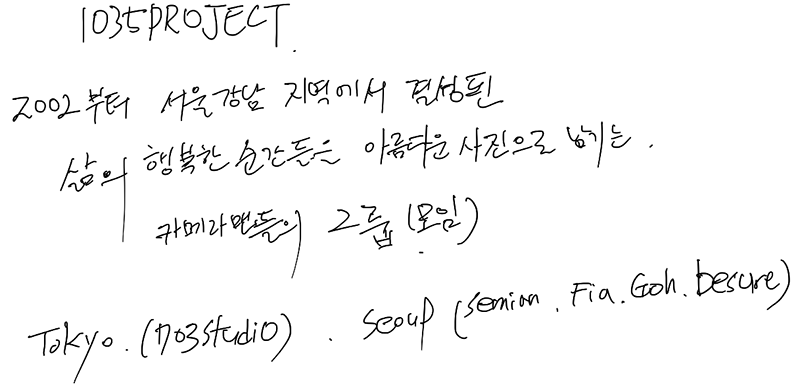 1035PROJECT.
2002부터 서울강남 지역에서 결성된
삶의 행복한 순간들을 아름다운 사진으로 남기는.
카메라맨들의 그룹(모임)
Tokyo. (703studio). Seoul (semian. Fia. Goh. besure)